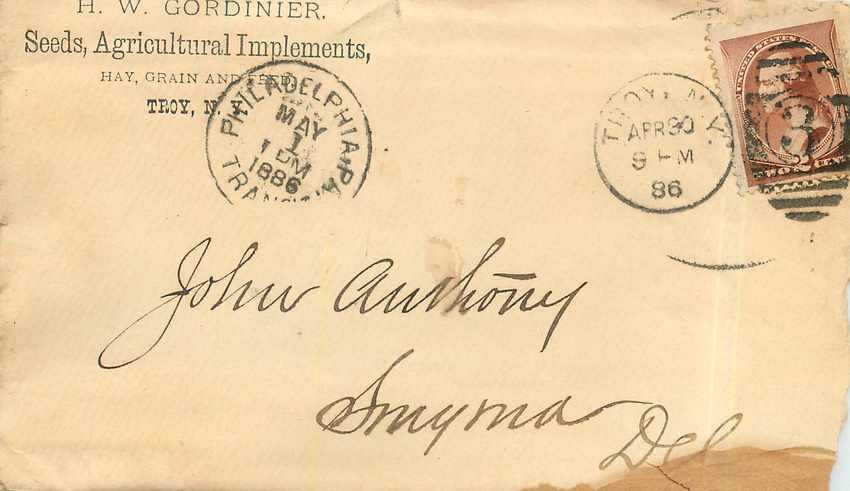 H. W. GORDINIER.
Seeds, Agricultural Implements,
HAY, GRAIN AND FEED,
TROY, N. Y.
PHILADELPHIA, PA.
MAY
1
1 PM
1886
TRANSIT
TROY, N.Y.
APR 30
9 PM
86
UNITED STATES
3
TWO 2 CENTS
John Anthony
Smyrna
Del